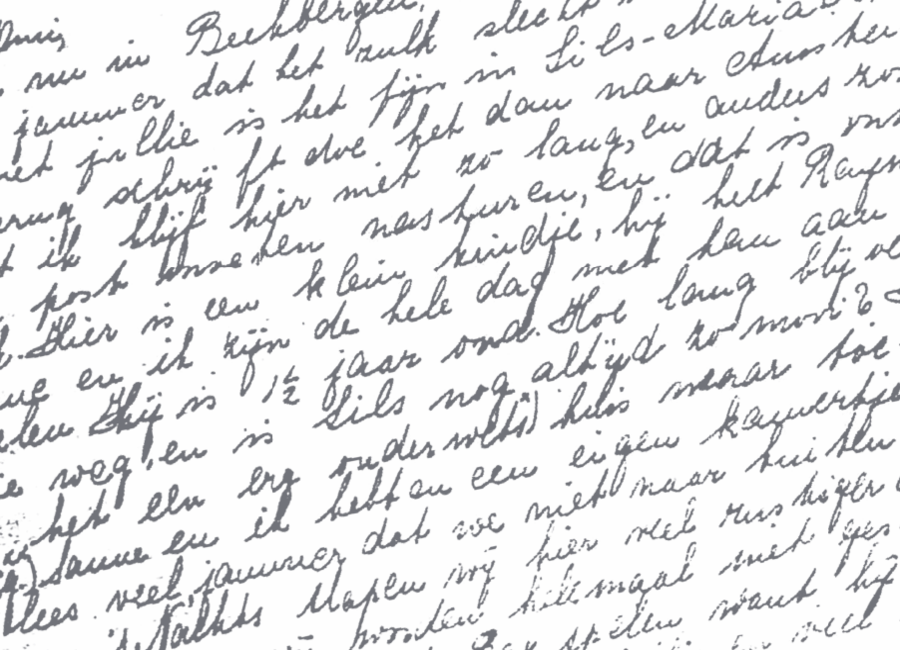 Omi,
nu in Beekbergen. slecht
jammer dat het zulk
jullie is het fijn in Sils-Maria?
terug schrijft doe het dan naar Amster
ik blijf hier niet zo lang, en anders zo
post nasturen, en dat is
Hier is een klein kindje, hij heet Raym
en ik zijn de hele dag met hem aan
Hij is 1½ jaar oud. Hoe lang blij
weg, en is Sils nog altijd zo mooi?
het een erg ouderwets) huis maar
Sanne en ik hebben een eigen kamertje
lees veel, jammer dat we niet naar buiten
's Nachts slapen wij hier veel rustiger
worden helemaal niet ges
spelen want hij
veel